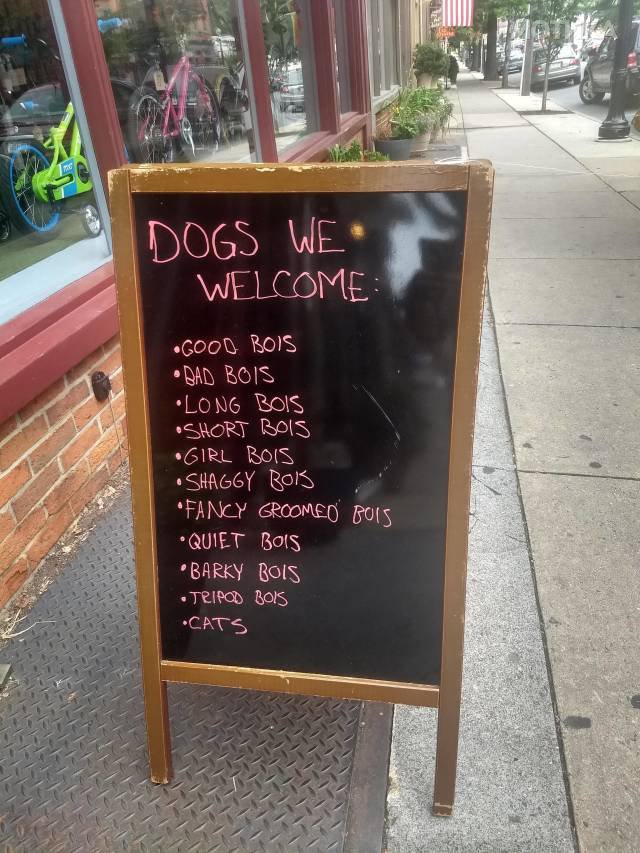 DOGS WE
WELCOME:
•GOOD BOIS
•BAD BOIS
•LONG BOIS
•SHORT BOIS
•GIRL BOIS
•SHAGGY BOIS
•FANCY GROOMED BOIS
•QUIET BOIS
•BARKY BOIS
•TRIPOD BOIS
•CATS